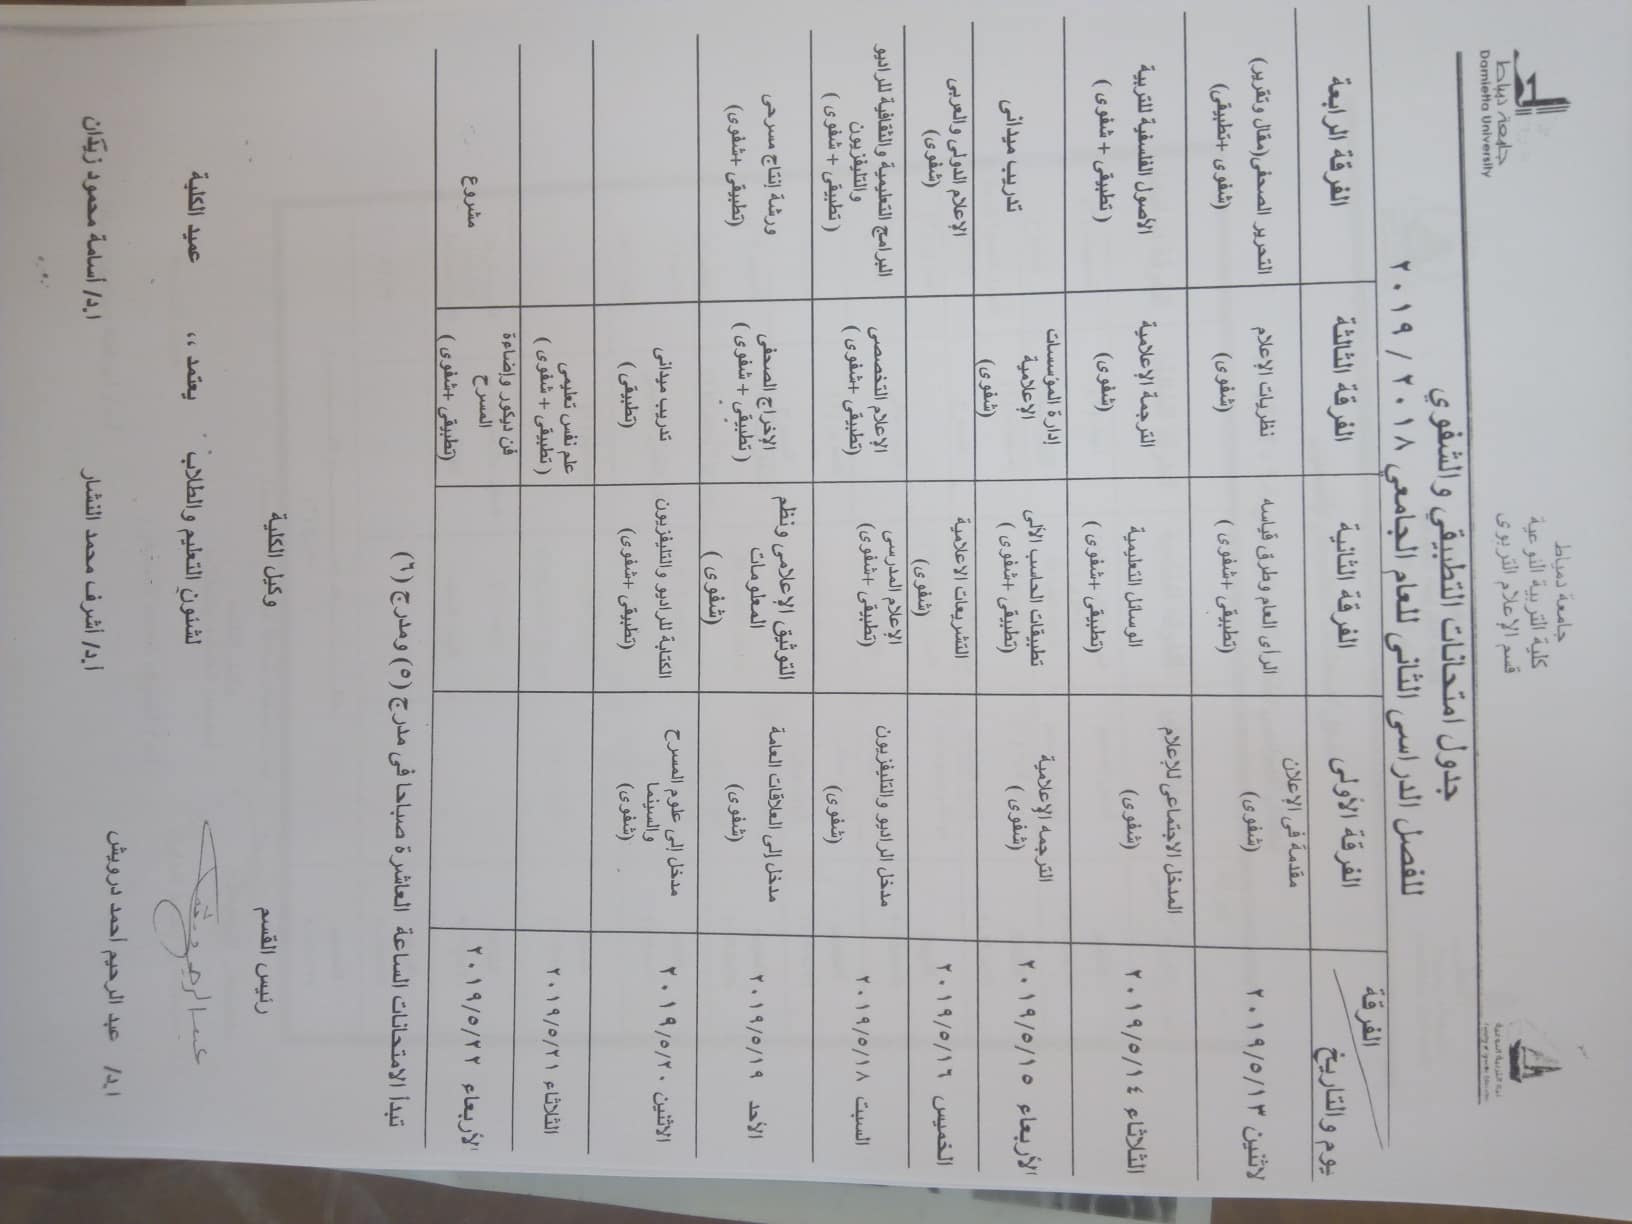 جامعة دمياط
Damietta University
جامعة دمياط
كلية التربية النوعية
قسم الإعلام التربوى
جدول امتحانات التطبيقي والشفوي
للفصل الدراسى الثانى للعام الجامعي ٢٠١٨ / ٢٠١٩
الفرقة
يوم والتاريخ
الفرقة الأولى
الفرقة الثانية
الفرقة الثالثة
الفرقة الرابعة
لاثنين ٢٠١٩/٥/١٣
مقدمة فى الإعلان
(شفوى)
الرأى العام وطرق قياسه
(تطبيقى +شفوى )
نظريات الإعلام
(شفوى)
التحرير الصحفى(مقال وتقرير)
(شفوى +تطبيقى)
الثلاثاء ٢٠١٩/٥/١٤
المدخل الاجتماعى للإعلام
(شفوى)
الوسائل التعليمية
(تطبيقى +شفوى )
الترجمة الإعلامية
(شفوى)
الأصول الفلسفية للتربية
( تطبيقى + شفوى )
الأربعاء ٢٠١٩/٥/١٥
الترجمه الإعلامية
(شفوى )
تطبيقات الحاسب الآلى
(تطبيقى +شفوى )
إدارة المؤسسات
الإعلامية
(شفوى)
تدريب ميدانى
الخميس ٢٠١٩/٥/١٦
التشريعات الاعلامية
(شفوى)
الإعلام الدولى والعربى
(شفوى)
السبت ٢٠١٩/٥/١٨
مدخل الراديو والتليفزيون
(شفوى)
الإعلام المدرسى
(تطبيقى +شفوى)
الإعلام التخصصى
(تطبيقى +شفوى )
البرامج التعليمية والثقافية للراديو
والتليفزيون
( تطبيقى + شفوى )
الأحد ٢٠١٩/٥/١٩
مدخل إلى العلاقات العامة
(شفوى)
التوثيق الإعلامى ونظم
المعلومات
(شفوى )
الإخراج الصحفى
( تطبيقى + شفوى )
ورشة إنتاج مسرحى
(تطبيقى +شفوى)
الاثنين ٢٠١٩/٥/٢٠
مدخل إلى علوم المسرح
والسينما
(شفوى)
الكتابة للراديو والتليفزيون
(تطبيقى +شفوى)
تدريب ميدانى
(تطبيقى )
الثلاثاء ٢٠١٩/٥/٢١
علم نفس تعليمى
( تطبيقى + شفوى )
لأربعاء ٢٠١٩/٥/٢٢
فن ديكور وإضاءة
المسرح
(تطبيقى +شفوى )
مشروع
تبدأ الامتحانات الساعة العاشرة صباحا فى مدرج (٥) ومدرج (٦)
رئيس القسم
وكيل الكلية
لشئون التعليم والطلاب
يعتمد ،،
عميد الكلية
ا.د/ عبد الرحيم أحمد درويش
أ.د/ أشرف محمد النشار
ا.د/ أسامة محمود زيكان